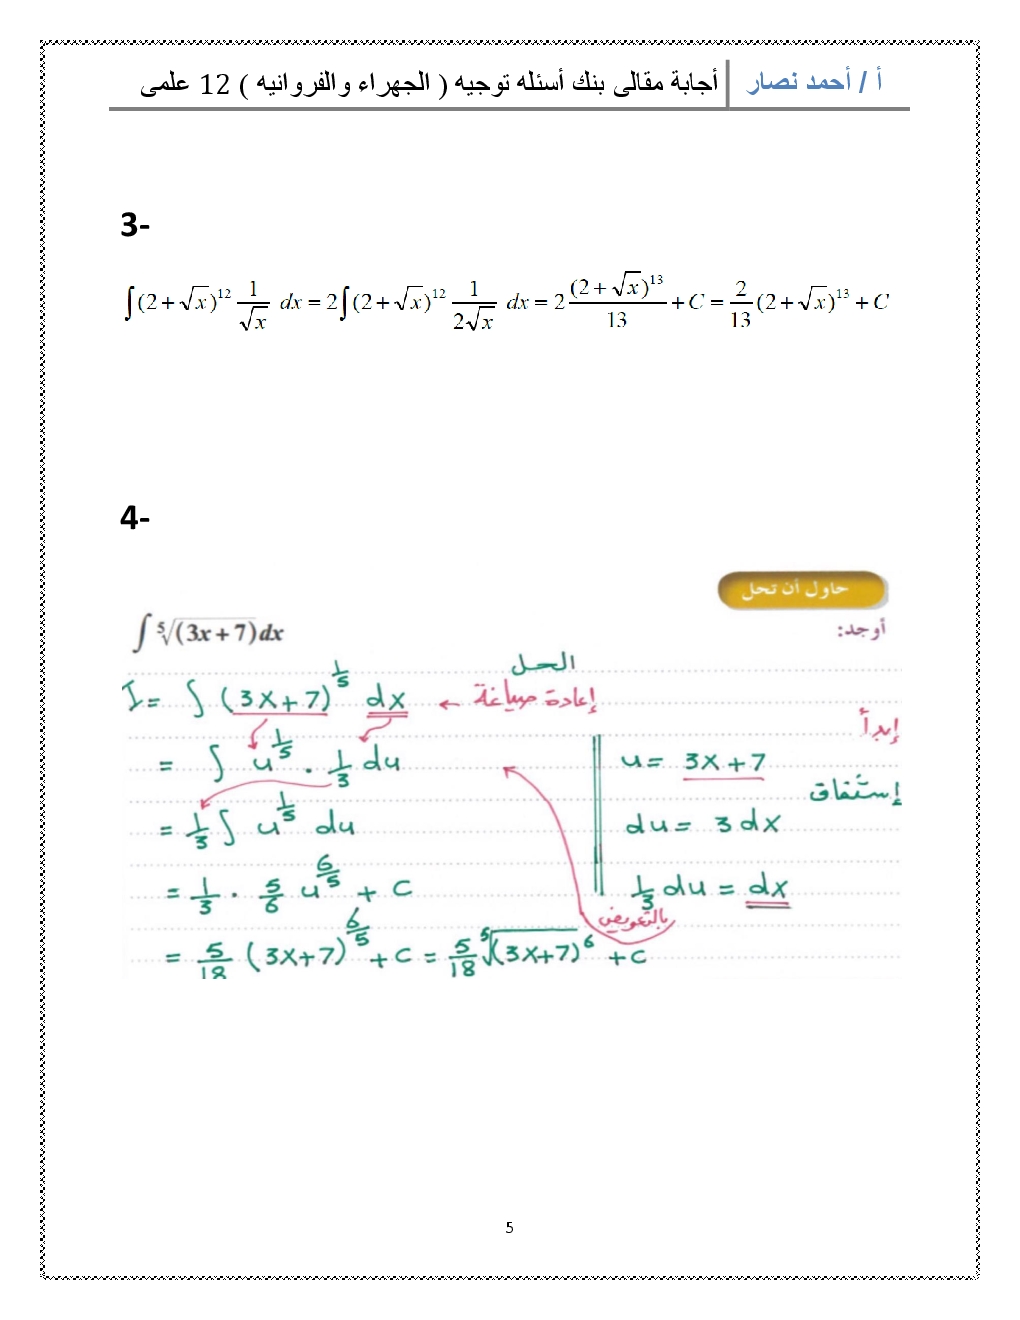 أ / أحمد نصار أجابة مقالى بنك أسئله توجيه ( الجهراء والفروانيه ) 12 علمى
3-
∫(2+√x)^12 1/√x dx = 2∫(2+√x)^12 1/(2√x) dx = 2 (2+√x)^13/13 + C = 2/13 (2+√x)^13 + C
4-
حاول أن تحل
أوجد:
∫ ⁵√(3x+7) dx
الحل
I = ∫ (3x+7)^(1/5) dx ← إعادة صياغة
إبدأ
= ∫ u^(1/5) . 1/3 du
u = 3x+7
إستقاق
= 1/3 ∫ u^(1/5) du
du = 3 dx
= 1/3 . 5/6 u^(6/5) + c
1/3 du = dx
بالتعويض
= 5/18 (3x+7)^(6/5) + c = 5/18 ⁵√(3x+7)^6 + c
5